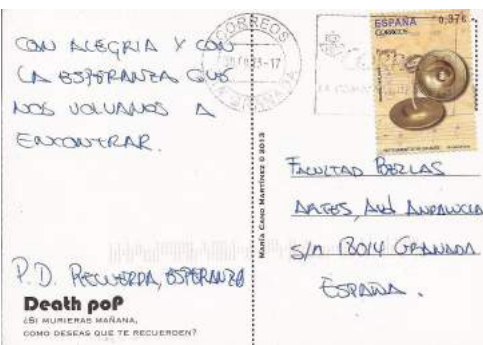 CON ALEGRIA Y CON
LA ESPERANZA QUE
NOS VOLVAMOS A
ENCONTRAR.
P.D. RECUERDA, ESPERANZA
Death poP
¿SI MURIERAS MAÑANA,
COMO DESEAS QUE TE RECUERDEN?
MARÍA CANO MARTÍNEZ © 2013
CORREOS
GRANADA
ESPAÑA 0,37€
CORREOS
FACULTAD BELLAS
ARTES, AVD ANDALUCIA
S/N 18014 GRANADA
ESPAÑA.